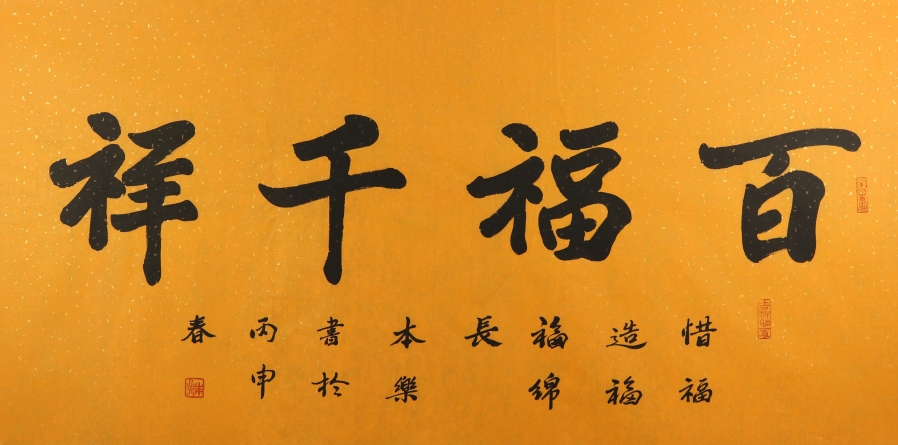 百福千祥
惜福
造福
福綿
長
本樂
書於
丙申
春